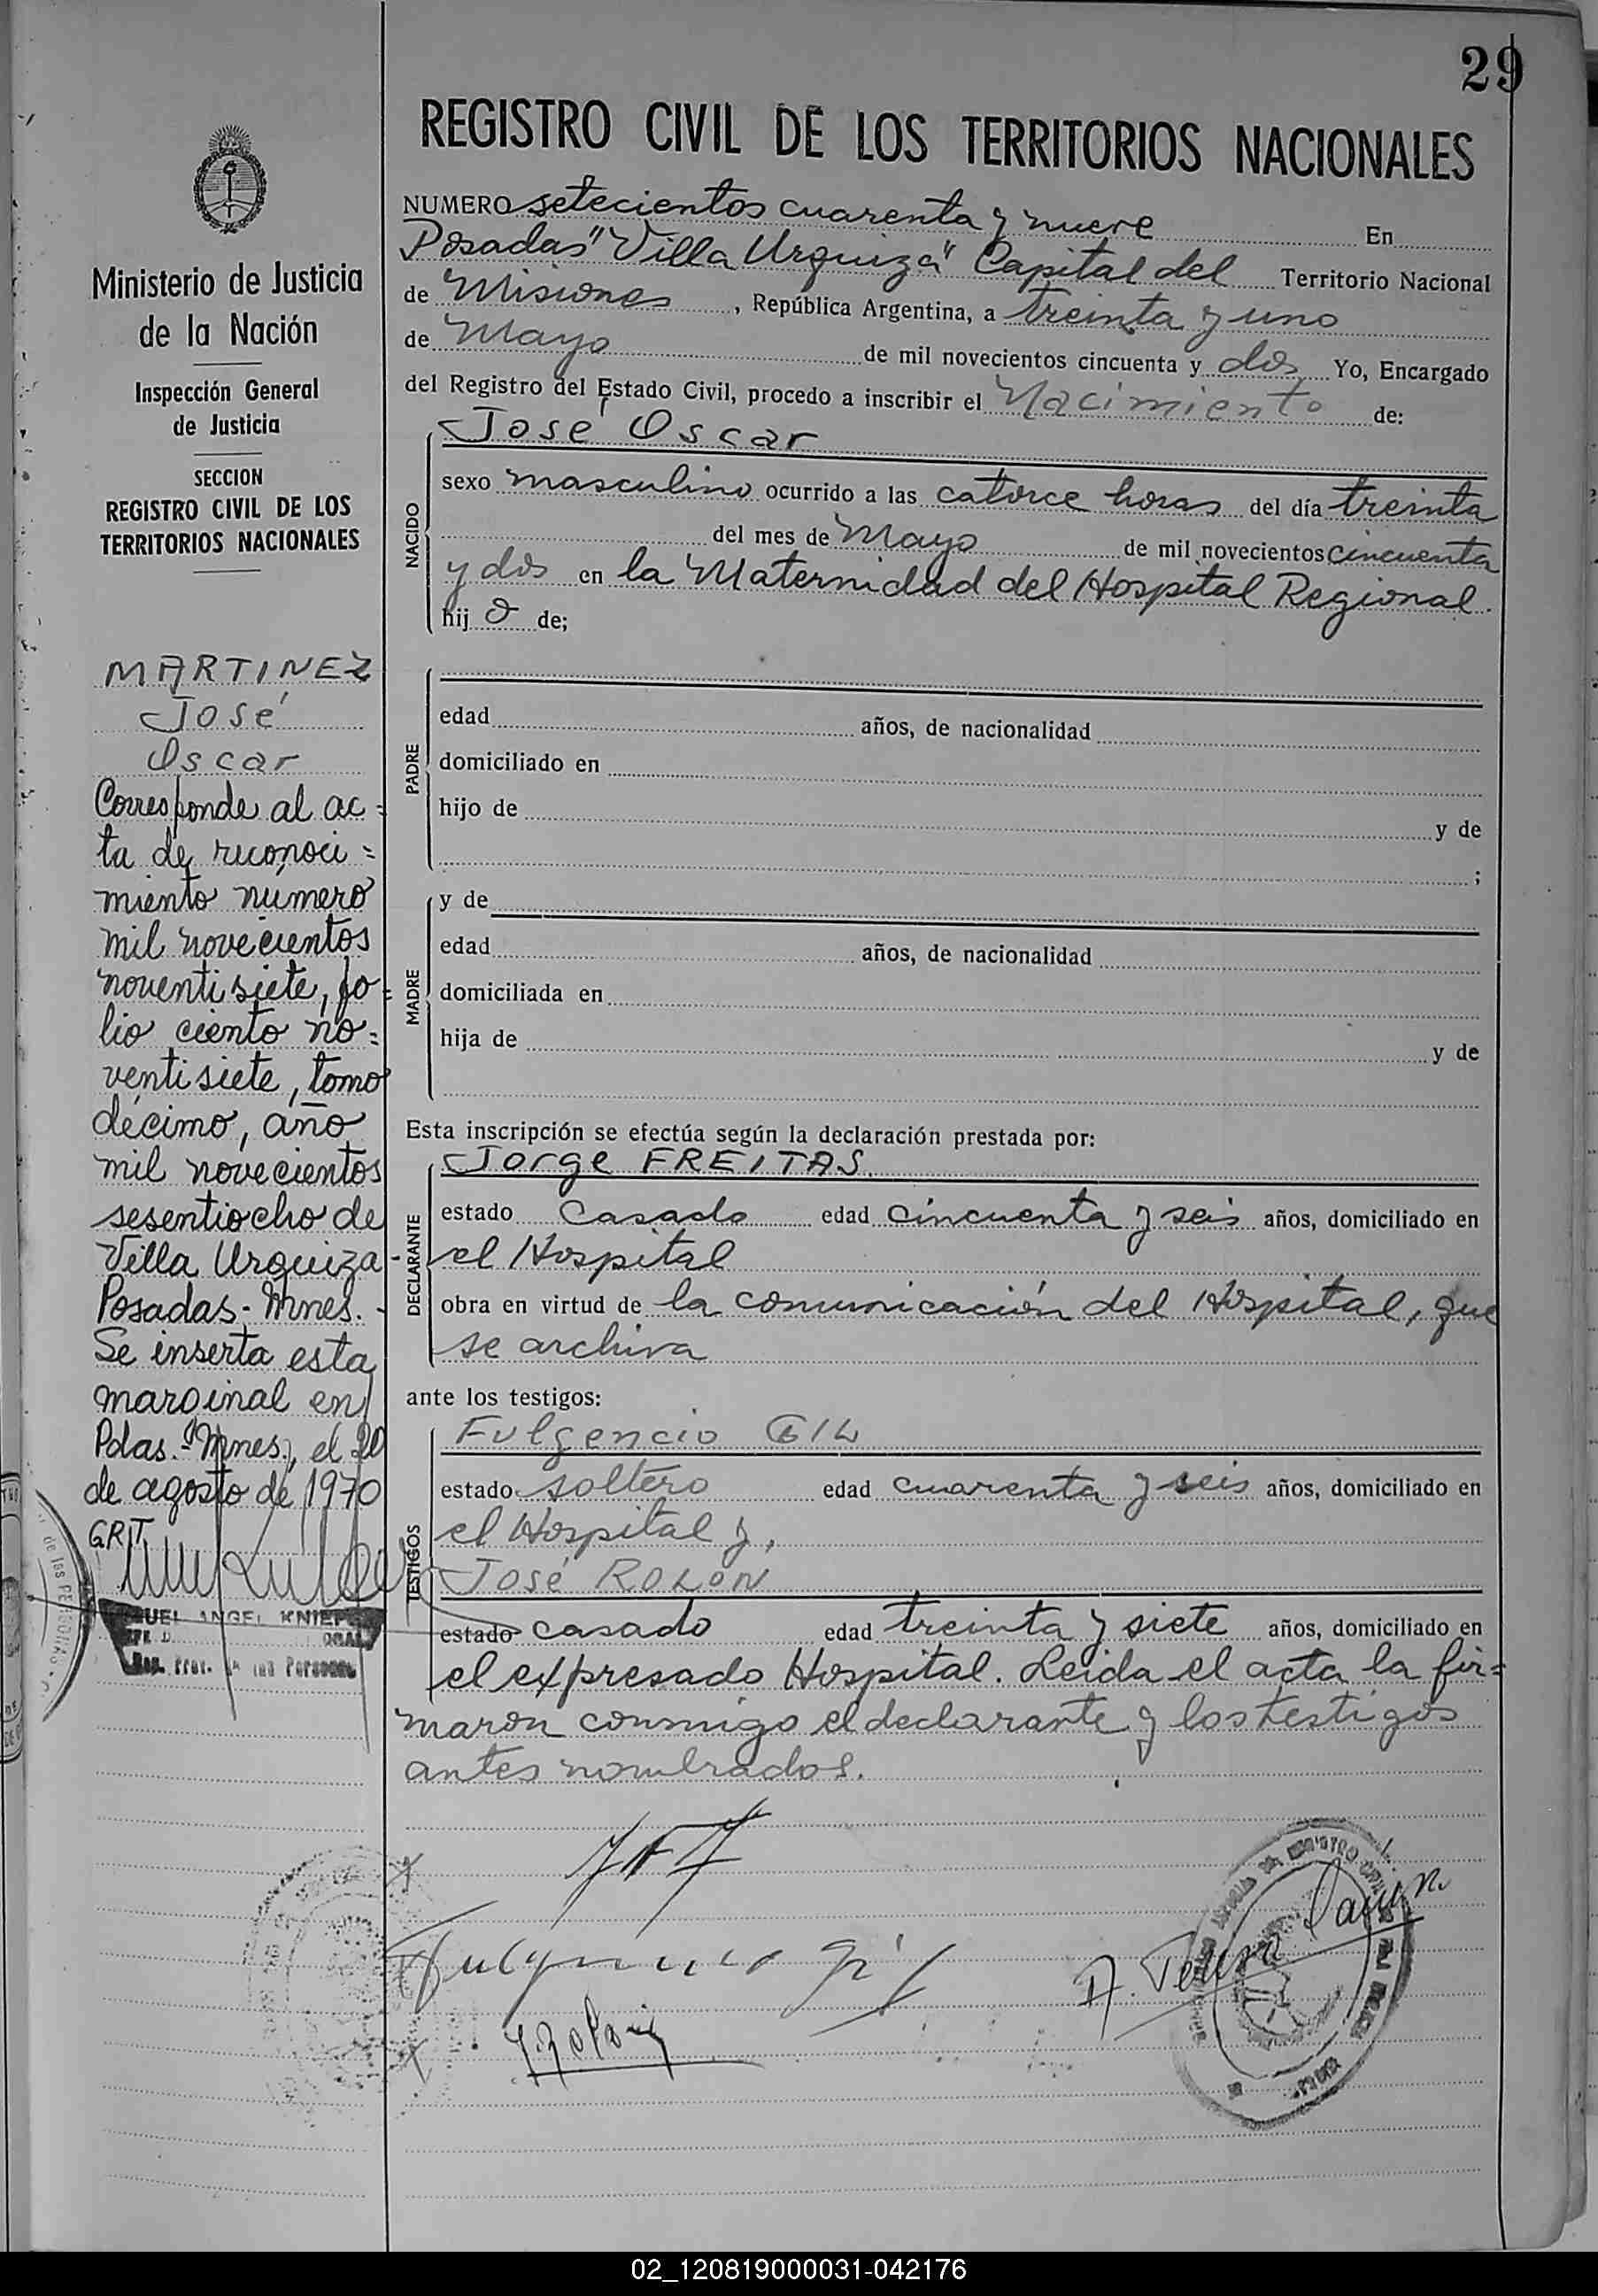 29
REGISTRO CIVIL DE LOS TERRITORIOS NACIONALES
Ministerio de Justicia
de la Nación
Inspección General
de Justicia
SECCION
REGISTRO CIVIL DE LOS
TERRITORIOS NACIONALES
MARTINEZ
José
Oscar
Corresponde al ac=
ta de reconoci=
miento número
mil novecientos
noventisiete, fo=
lio ciento no=
ventisiete, tomo
décimo, año
mil novecientos
sesentiocho de
Villa Urquiza-
Posadas-Mnes.-
Se inserta esta
marginal en
Pdas. Mnes, el 20
de agosto de 1970
GRIT
ANGEL KNIEP
NUMERO setecientos cuarenta y nueve En
Posadas "Villa Urquiza" Capital del Territorio Nacional
de Misiones, República Argentina, a treinta y uno
de Mayo de mil novecientos cincuenta y dos Yo, Encargado
del Registro del Estado Civil, procedo a inscribir el Nacimiento de:
NACIDO
José Oscar
sexo masculino ocurrido a las catorce horas del día treinta
del mes de Mayo de mil novecientos cincuenta
y dos en la Maternidad del Hospital Regional.
hij o de;
PADRE
edad años, de nacionalidad
domiciliado en
hijo de y de
;
MADRE
y de
edad años, de nacionalidad
domiciliada en
hija de y de
Esta inscripción se efectúa según la declaración prestada por:
DECLARANTE
Jorge FREITAS.
estado Casado edad cincuenta y seis años, domiciliado en
el Hospital
obra en virtud de la comunicación del Hospital, que
se archiva
ante los testigos:
TESTIGOS
Fulgencio GIL
estado soltero edad cuarenta y seis años, domiciliado en
el Hospital y,
José ROLON
estado casado edad treinta y siete años, domiciliado en
el expresado Hospital. Leida el acta la fir=
maron conmigo el declarante y los testigos
antes nombrados.
02_120819000031-042176